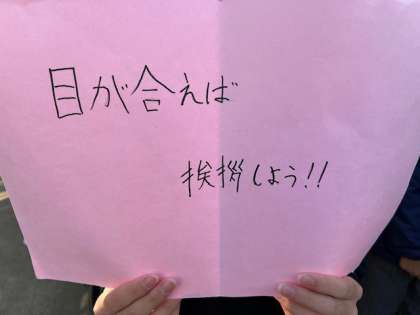 目が合えば
挨拶しよう!!